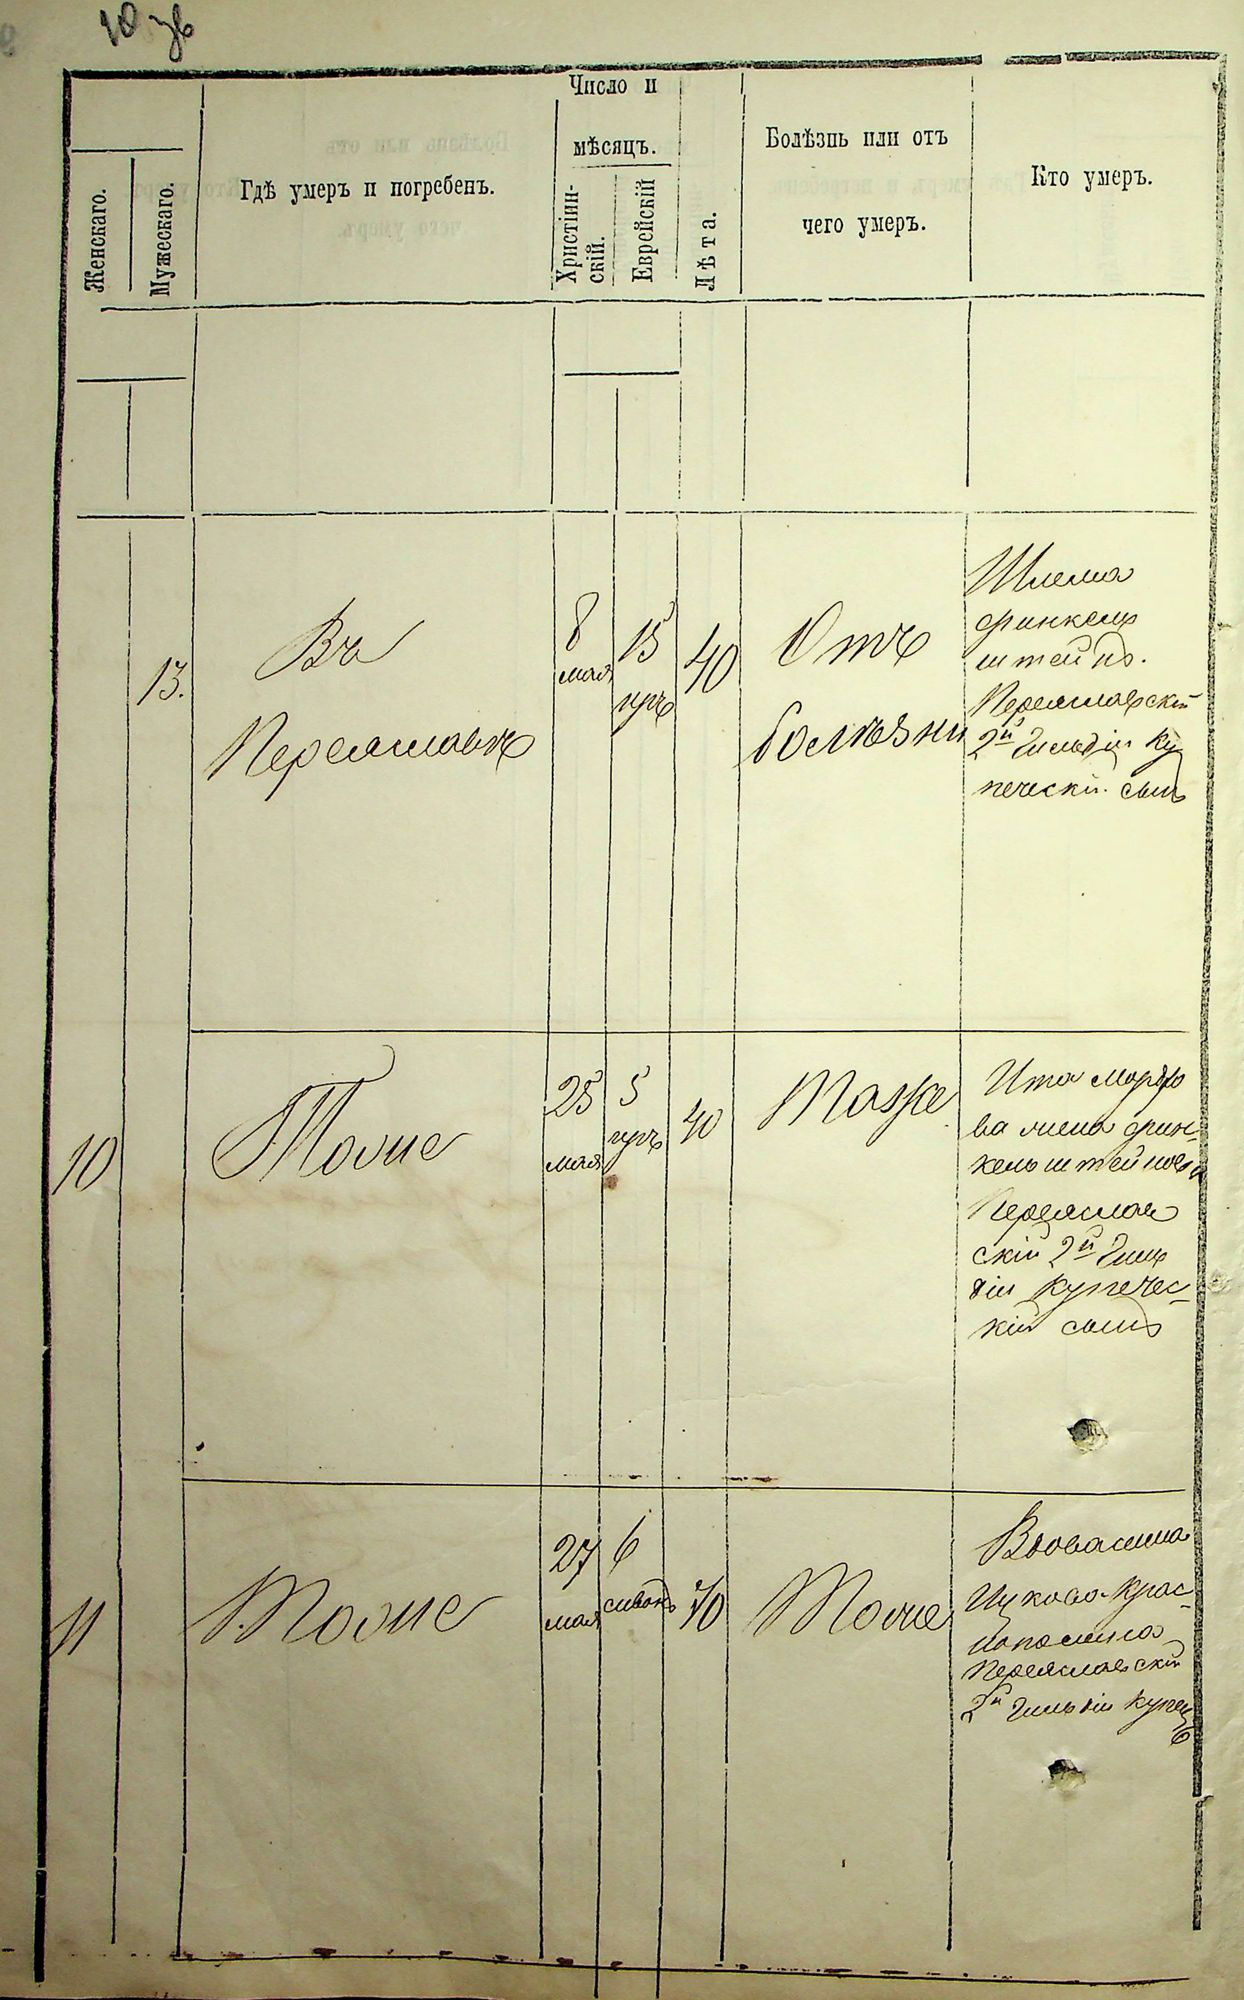 10 зв
Число и
мѣсяцъ.
Женскаго.
Мужескаго.
Гдѣ умеръ и погребенъ.
Христіин-
скій.
Еврейскій
Лѣта.
Болѣзнь или отъ
чего умеръ.
Кто умеръ.
13.
Въ
Переяславѣ
8
мая
15
іиръ
40
Отъ
болѣзни
Шлема
финкель
штейнъ.
Переяславскій
2й Гильдіи Ку
печескій сынъ
10
Тоже
25
мая
5
40
Тоже
Ита мордко
ва жена фин-
кельштейнова
Переяслав
скій 2й Гиль
діи купечес-
кій сынъ
11
Тоже
27
мая
6
сивонъ
70
Тоже
Переяславскій
2й Гильдіи купец